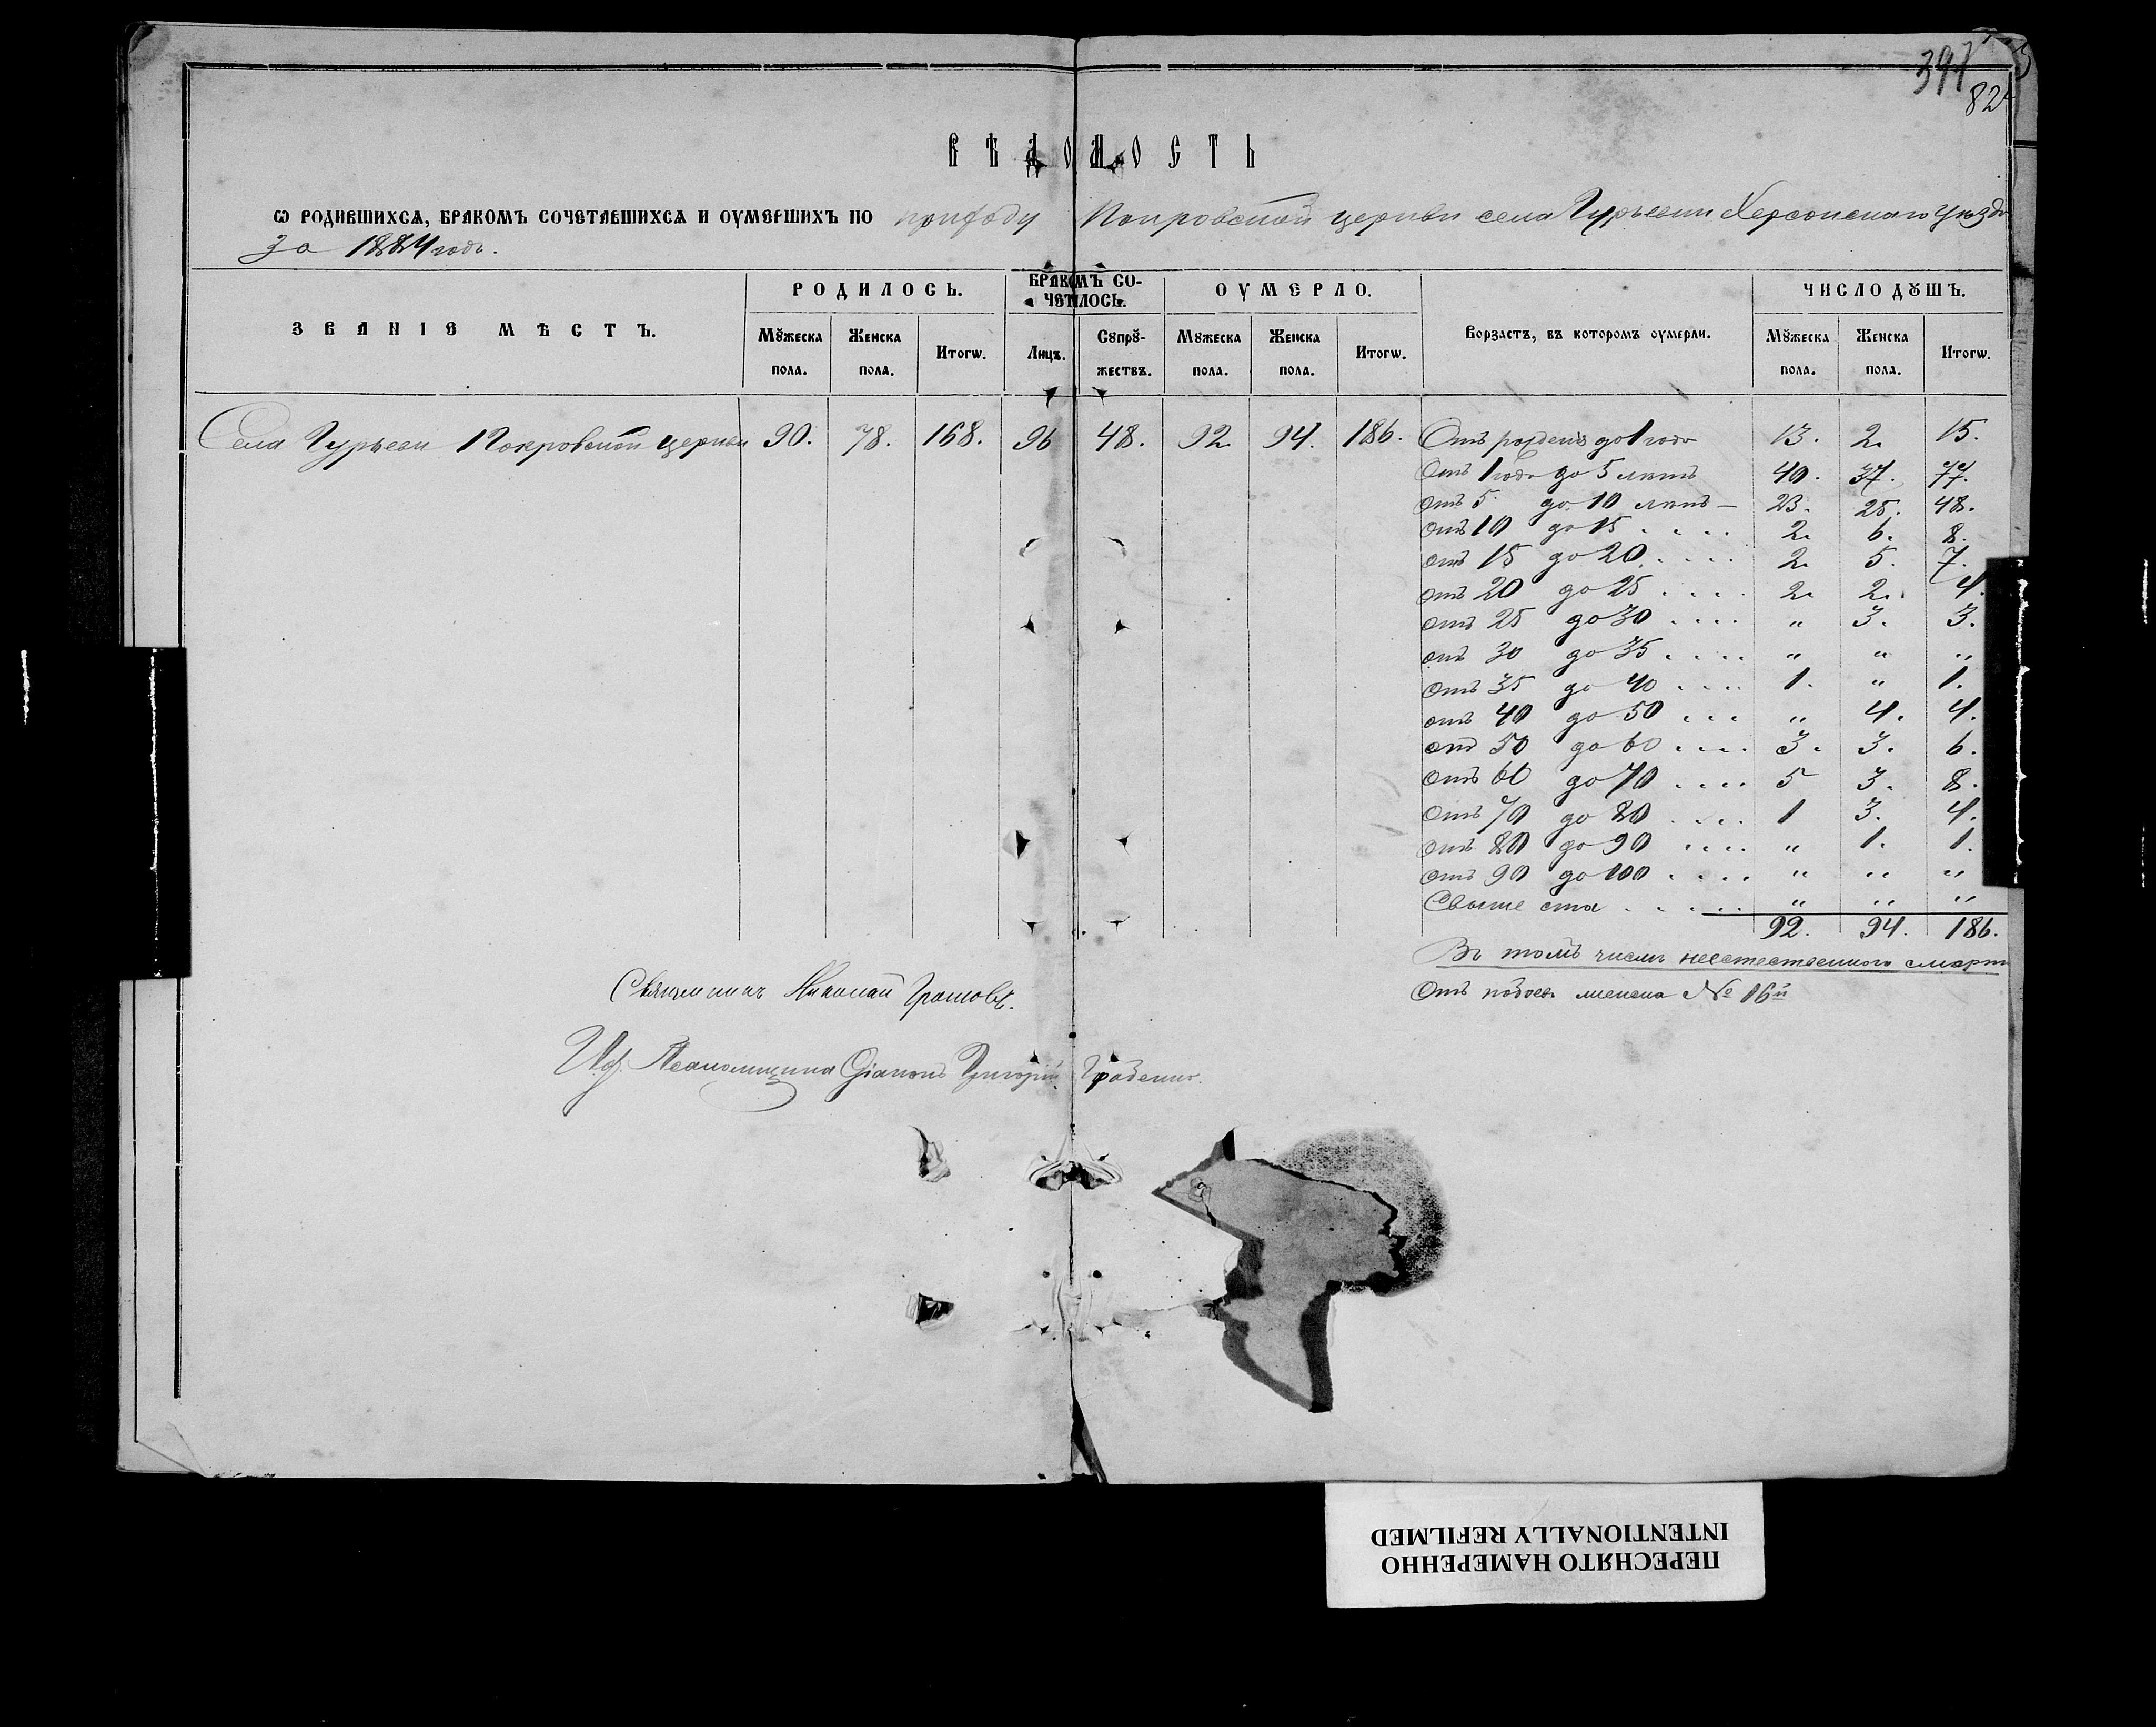 397
82
ВѢДОМОСТЬ
Ѡ РОДИВШИХСѦ, БРАКОМЪ СОЧЕТАВШИХСѦ И ОУМЕРШИХЪ ПО приходу Покровской церкви села Гурьевки Херсонскаго Уѣзда
за 1884 годъ.
ЗВАНІЕ МѢСТЪ. РОДИЛОСЬ. БРАКОМЪ СО-ЧЕТАЛОСЬ. ОУМЕРЛО. Ворзастъ, въ которомъ оумерли. ЧИСЛО ДꙊШЪ.
Мꙋжеска пола. Женска пола. Итогѡ. Лицъ. Сꙋпрꙋ-жествъ. Мꙋжеска пола. Женска пола. Итогѡ. Мꙋжеска пола. Женска пола. Итогѡ.
Села Гурьевки Покровской церкви 90. 78. 168. 96 48. 92. 94. 186. Отъ рожденія до 1 года 13. 2. 15.
Отъ 1 года до 5 лѣтъ 40. 37. 77.
Отъ 5 до 10 лѣтъ — 23. 25. 48.
Отъ 10 до 15 . . . . 2. 6. 8.
отъ 15 до 20 . . . . 2. 5. 7.
отъ 20 до 25 . . . . 2. 2. 4.
отъ 25 до 30 . . . . " 3. 3.
отъ 30 до 35 . . . . " " "
Отъ 35 до 40 . . . . 1. " 1.
отъ 40 до 50 . . . " 4. 4.
отъ 50 до 60 . . . . 3. 3. 6.
Отъ 60 до 70 . . . . 5 3. 8.
Отъ 70 до 80 . . . . 1 3. 4.
отъ 80 до 90 . . . . " 1. 1.
отъ 90 до 100 . . . . " " "
Свыше ста . . . . . " " "
92. 94. 186.
Въ томъ числѣ неестественною смертью
Отъ № 16й
Священникъ Николай
И.д. Псаломщика Діаконъ Григорій
ПЕРЕСНЯТО НАМЕРЕННО
INTENTIONALLY REFILMED